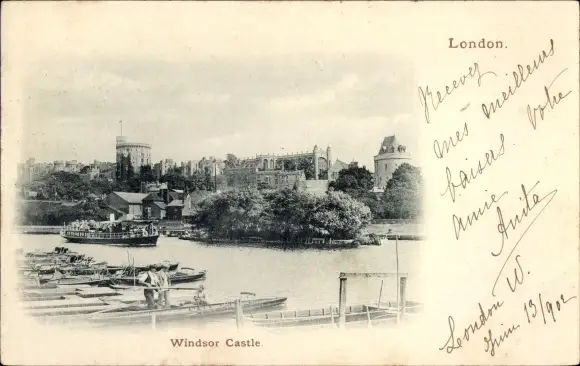 London.
Recevez
mes meilleurs
baisers. Votre
amie Anita
London W.
Juin 13/902
Windsor Castle.